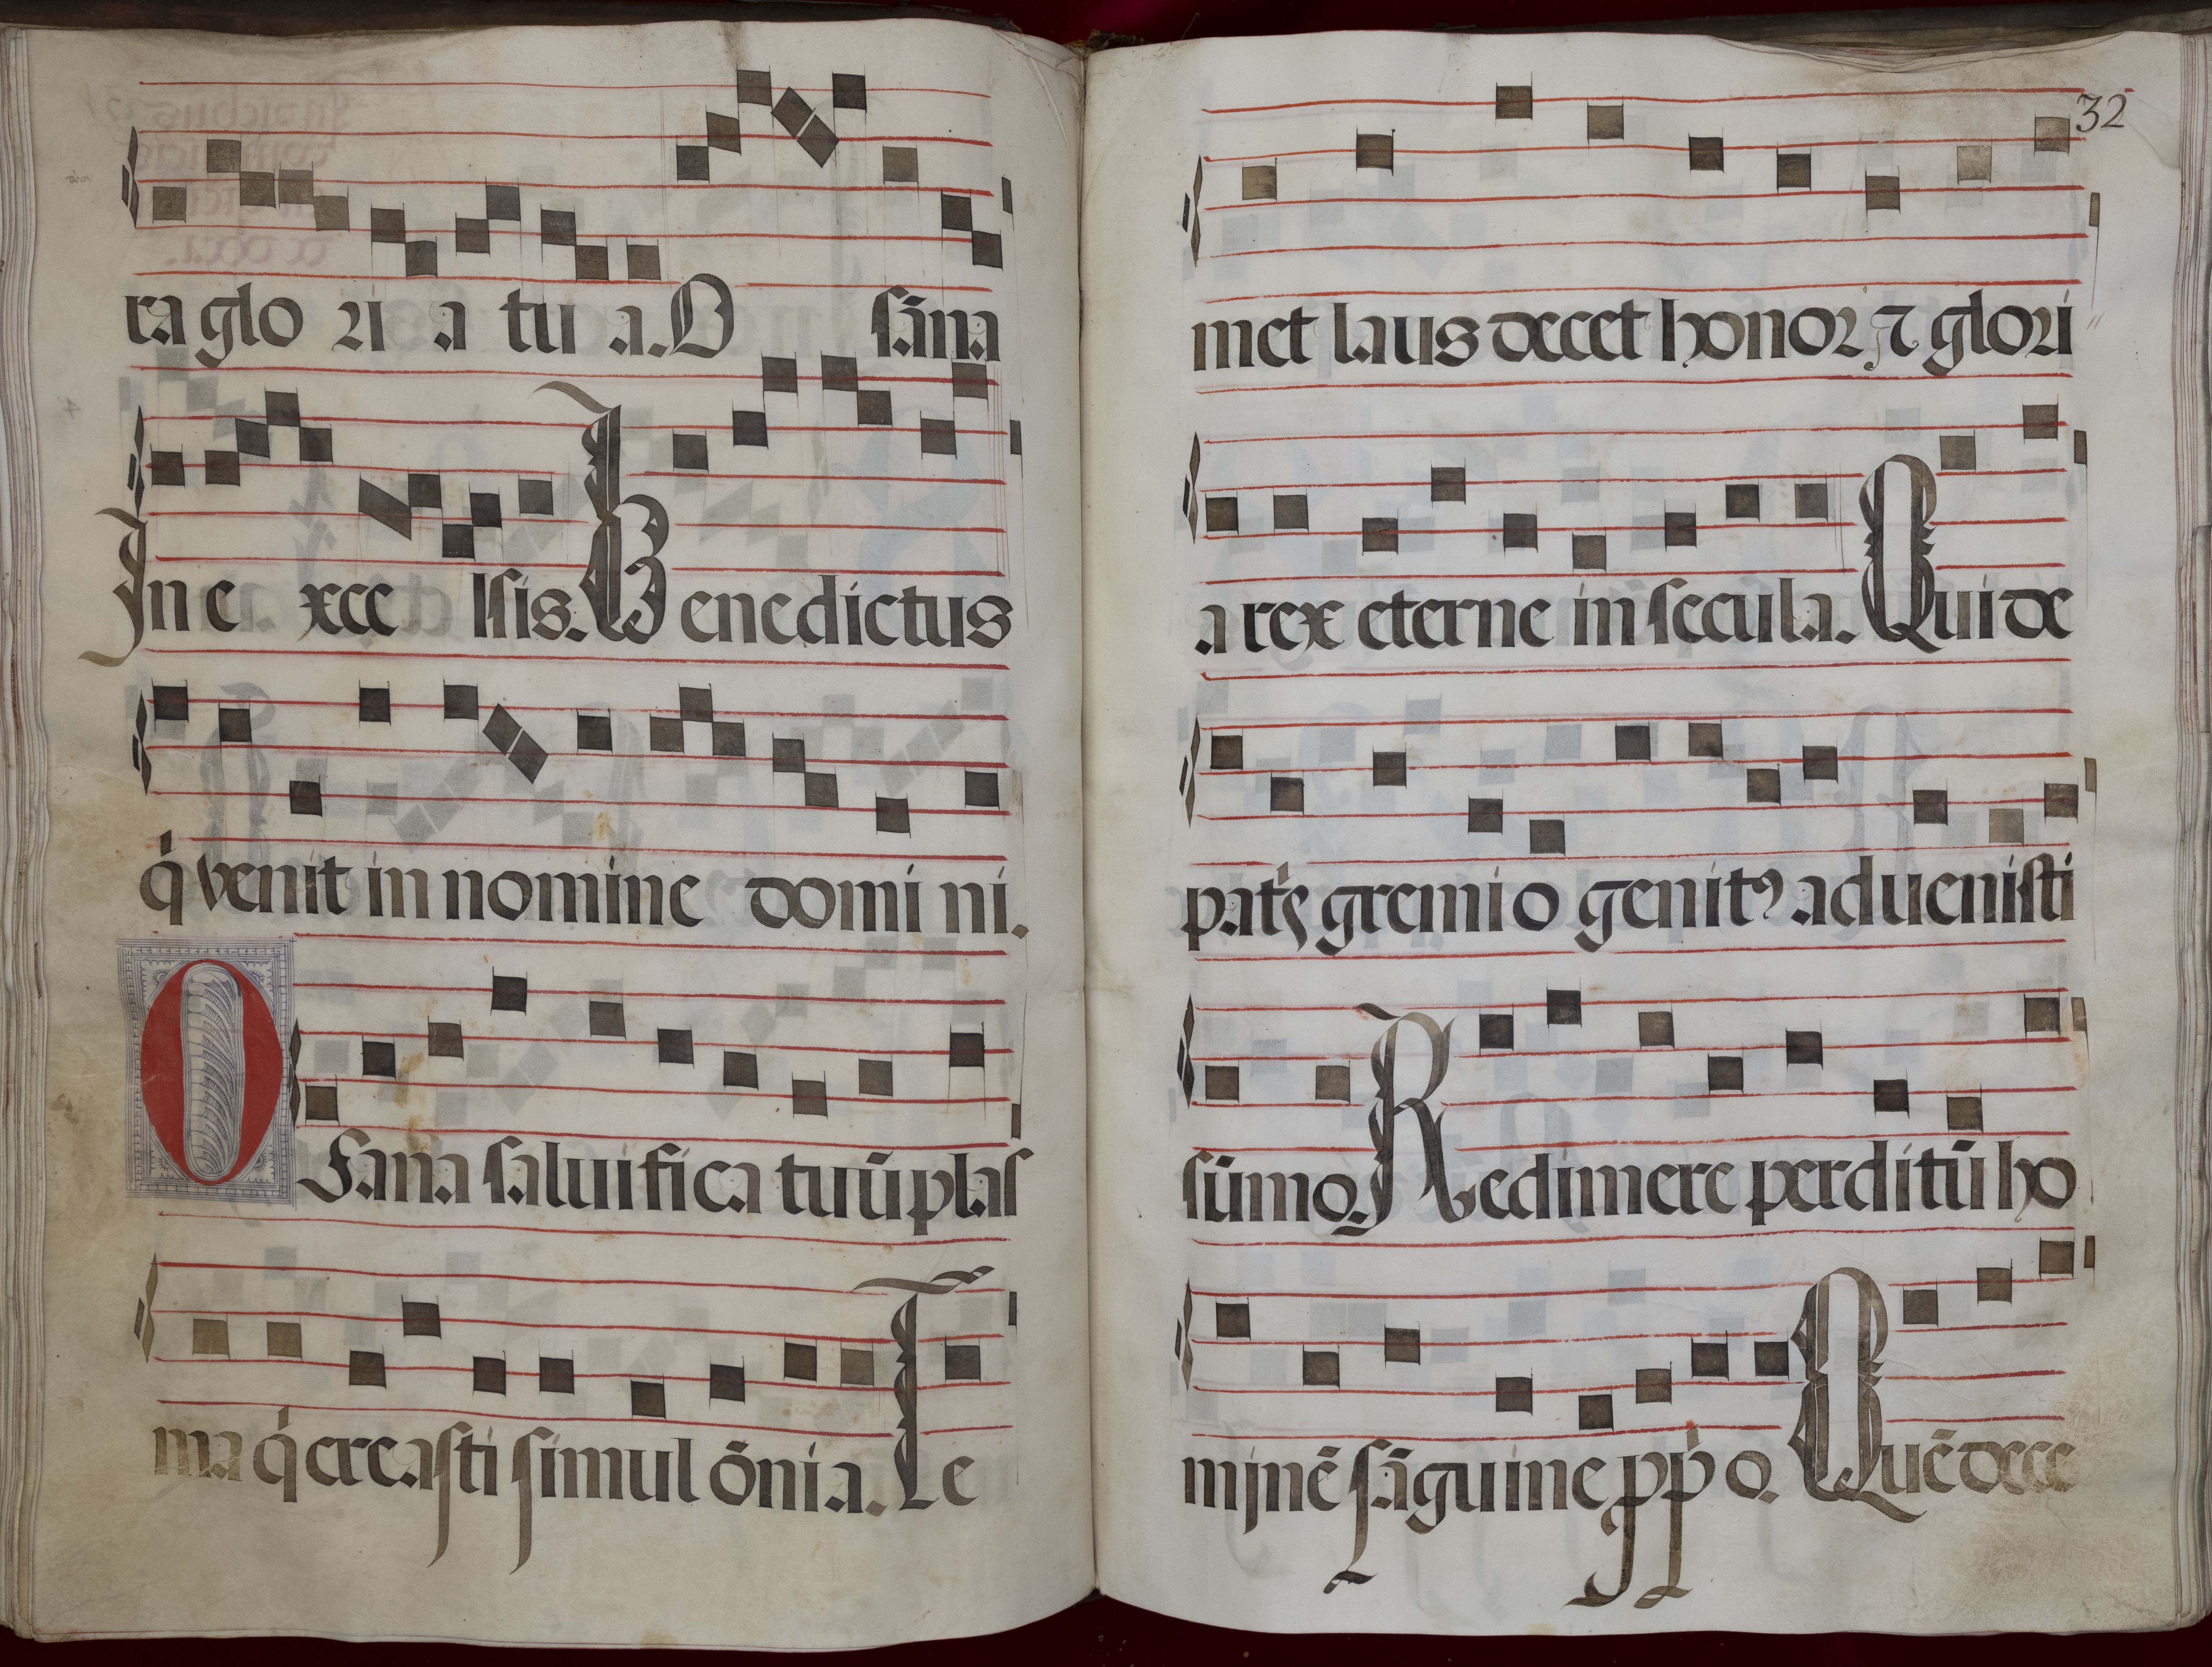 ra glo ri a tu a. O sāna
In e xce lsis. Benedictus
q̇ venit in nomine domi ni.
OSana saluifica tuū plas
ma q̇ creasti simul ōnia. Te
32
met laus decet honor ⁊ glori
a rex eterne in secula. Qui de
patꝭ gremio genitꝰ aduenisti
sūmo. Redimere perditū ho
minē sāguine ꝓpͥo. Quē dece